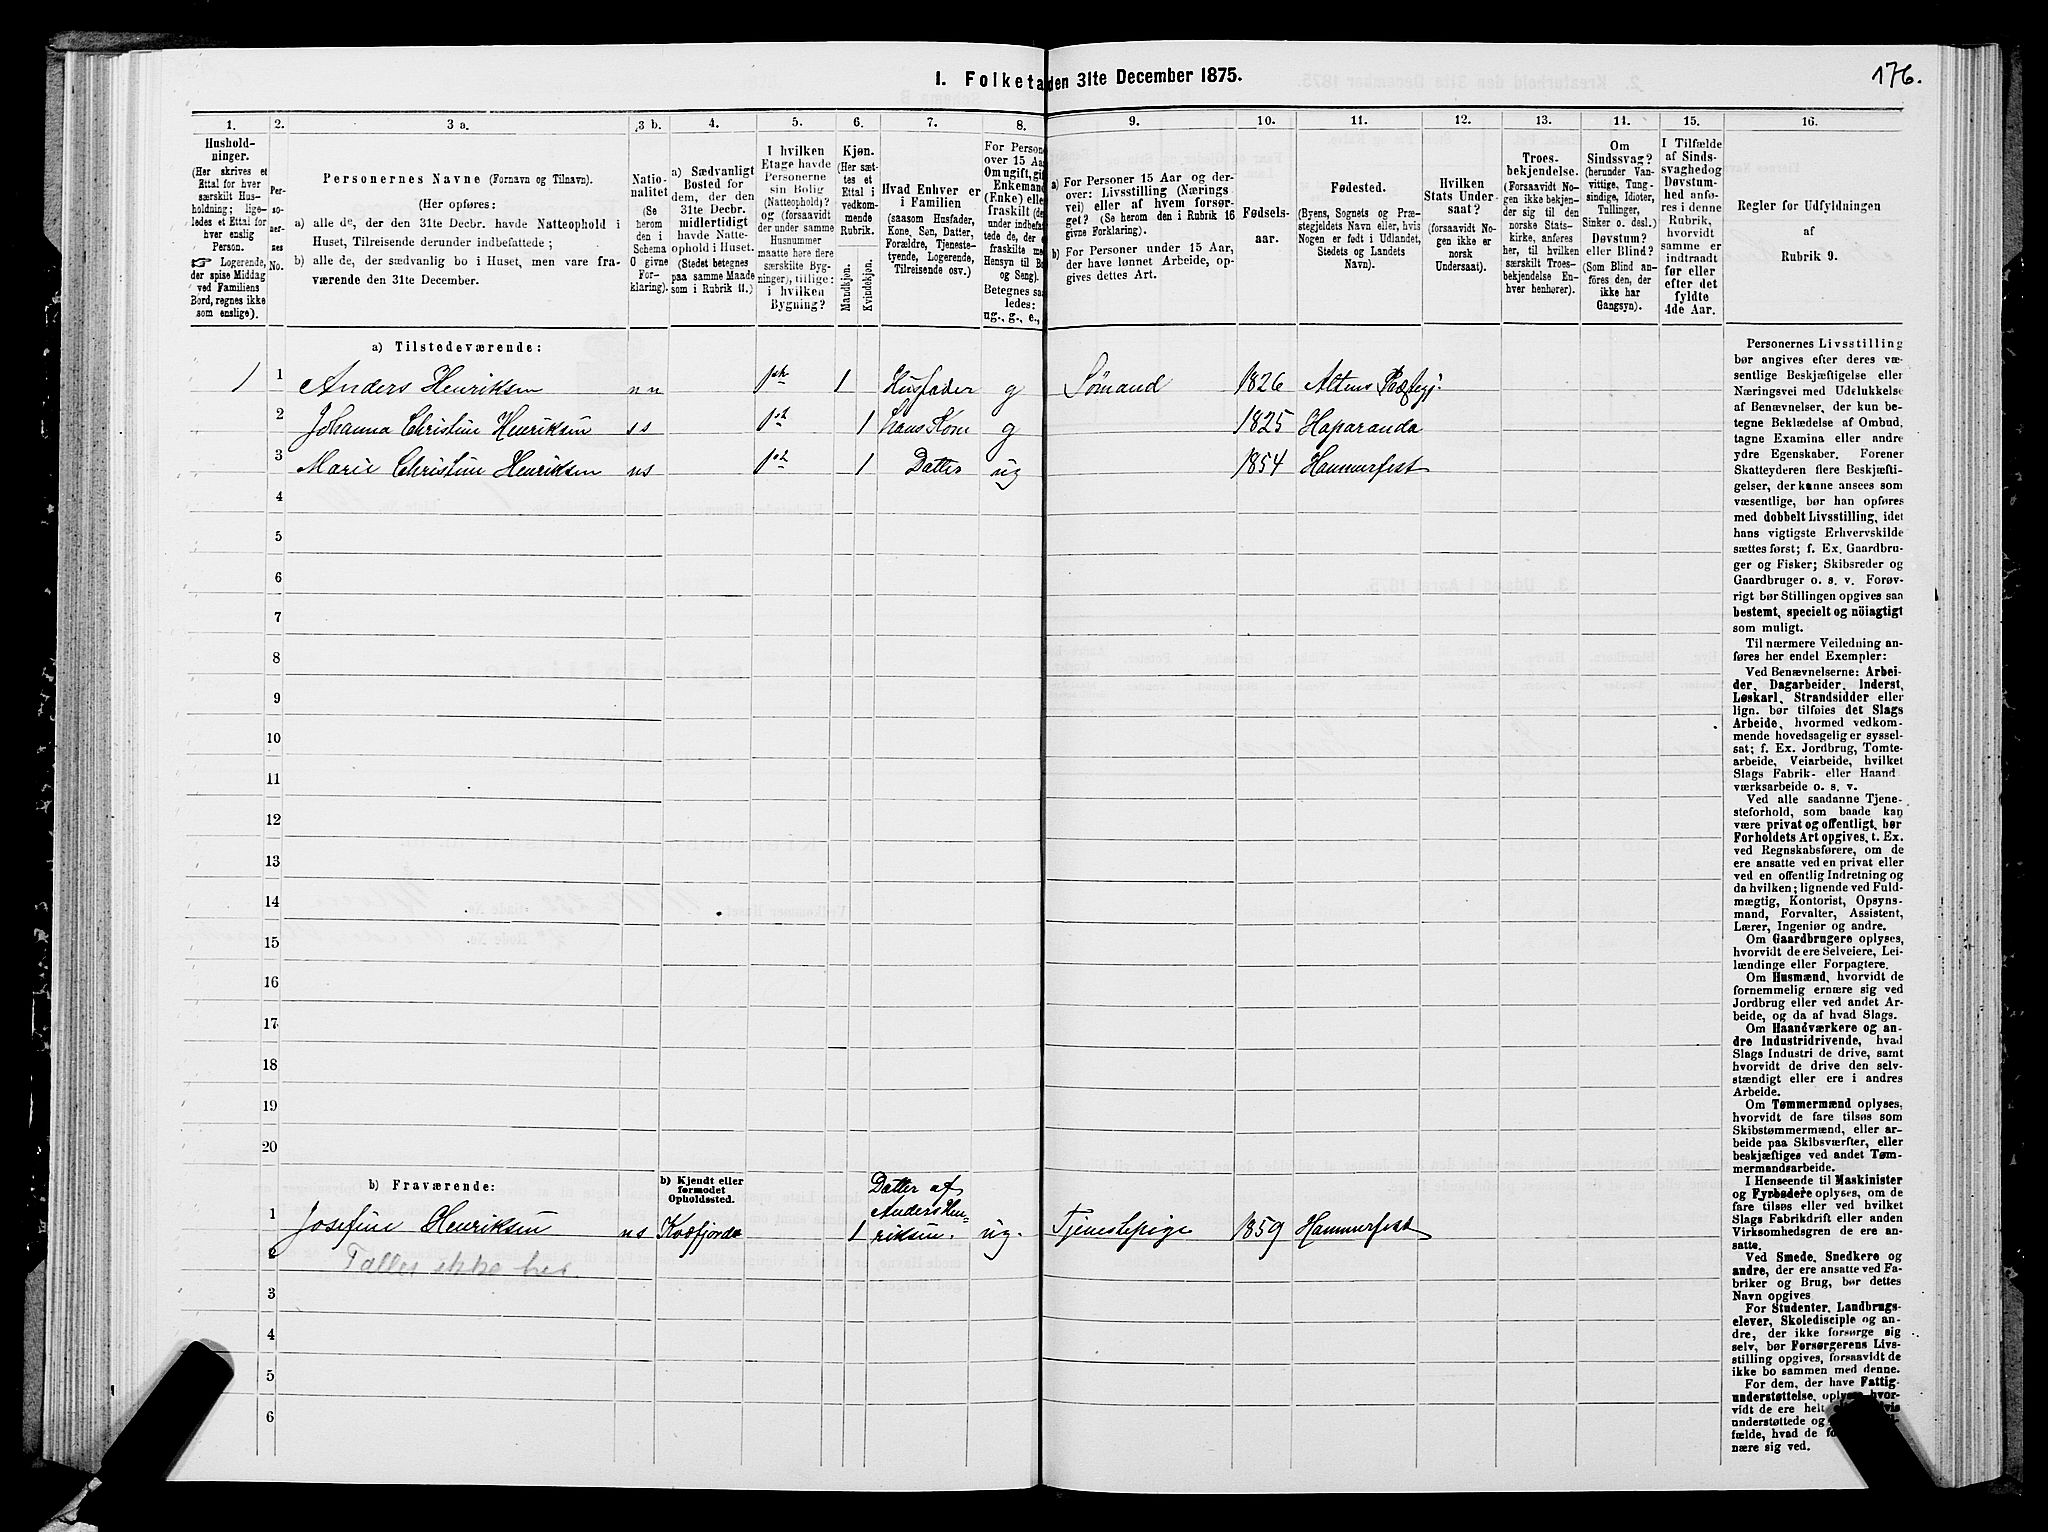 I. Folketa den 31te December 1875.
176.
1. 2. 3 a. 3 b. 4. 5. 6. 7. 8. 9. 10. 11. 12. 13. 14. 15. 16.
Hushold-
ninger.
(Her skrives et
Ettal for hver
særskilt Hus-
holdning; lige-
ledes et Ettal for
hver enslig
Person.
☞ Logerende,
der spise Middag
ved Familiens
Bord, regnes ikke
som enslige).
Per-
so-
ner-
nes
No.
Personernes Navne (Fornavn og Tilnavn).
(Her opføres:
a) alle de, der den 31te Decbr. havde Natteophold i
Huset, Tilreisende derunder indbefattede;
b) alle de, der sædvanlig bo i Huset, men vare fra-
værende den 31te December.
Natio-
nalitet
(Se
herom
den i
Schema
O givne
For-
klaring).
a) Sædvanligt
Bosted for
dem, der den
31te Decbr.
midlertidigt
havde Natte-
ophold i Huset.
(Stedet betegnes
paa samme Maade
som i Rubrik 11.)
I hvilken
Etage havde
Personerne
sin Bolig
(Natteophold)?
og (forsaavidt
der under samme
Husnummer
maatte høre flere
særskilte Byg-
ninger), tillige:
i hvilken
Bygning?
Kjøn.
(Her sæt-
tes et
Ettal i
vedkom-
mende
Rubrik.
Mandkjøn.
Kvindekjøn.
Hvad Enhver er
i Familien
(saasom Husfader,
Kone, Søn, Datter,
Forældre, Tjeneste-
tyende, Logerende,
Tilreisende osv.)
For Person
over 15 Aar
Om ugift, gif
Enkemand
(Enke) elle
fraskilt (de
under indbefat
tede de, der e
fraskilte me
Hensyn til Bo
og Seng).
Betegnes saa
ledes:
ug., g., e.,
a) For Personer 15 Aar og der-
over: Livsstilling (Nærings
vei) eller af hvem forsør-
get? (Se herom den i Rubrik 16
givne Forklaring).
b) For Personer under 15 Aar,
der have lønnet Arbeide, op-
gives dettes Art.
Fødsels-
aar.
Fødested.
(Byens, Sognets og Præ-
stegjeldets Navn eller, hvis
Nogen er født i Udlandet,
Stedets og Landets
Navn).
Hvilken
Stats Under
saat?
(forsaavidt No-
gen ikke er
norsk
Undersaat).
Troes-
bekjendelse.
(Forsaavidt No-
gen ikke bekjen-
der sig til den
norske Stats-
kirke, anføres
her, til hvilken
særskilt Troes-
bekjendelse En-
hver henhører).
Om
Sindssvag?
(herunder Van-
vittige, Tung-
sindige, Idioter,
Tullinger,
Sinker o. desl.)
Døvstum?
eller Blind?
(Som Blind an-
føres den, der
ikke har
Gangsyn).
I Tilfælde
af Sinds-
svaghedog
Døvstum-
hed anfø-
res i denne
Rubrik,
hvorvidt
samme er
indtraadt
før eller
efter det
fyldte
4de Aar.
Regler for Udfyldningen
af
Rubrik 9.
a) Tilstedeværende:
1 1 Anders Henriksen nn 1ste 1 Husfader g Sømand 1826 Altens Præstegj.
2 Johanna Christine Henriksen ss 1st 1 hans Kone g 1825 Haparanda
3 Marie Christine Henriksen ns 1st 1 Datter ug 1854 Hammerfest
4
5
6
7
8
9
10
11
12
13
14
15
16
17
18
19
20
b) Fraværende:
b) Kjendt eller
formodet
Opholdssted.
Datter af
Anders Hen-
1 Josefine Henriksen ns Kvæfjorde 1 riksen. ug. Tjenestepige 1859 Hammerfest
2 Tælles ikke her.
3
4
5
6
Personernes Livsstilling
bør angives efter deres væ-
sentlige Beskjæftigelse eller
Næringsvei med Udelukkelse
af Benævnelser, der kun be-
tegne Beklædelse af Ombud,
tagne Examina eller andre
ydre Egenskaber. Forener
Skatteyderen flere Beskjæfti-
gelser, der kunne ansees som
væsentlige, bør han opføres
med dobbelt Livsstilling, idet
hans vigtigste Erhvervskilde
sættes først; f. Ex. Gaardbru-
ger og Fisker; Skibsreder og
Gaardbruger o. s. v. Forøv-
rigt bør Stillingen opgives saa
bestemt, specielt og nöiagtigt
som muligt.
Til nærmere Veiledning an-
føres her endel Exempler:
Ved Benævnelserne: Arbei-
der, Dagarbeider, Inderst,
Løskarl, Strandsidder eller
lign. bør tilføies det Slags
Arbeide, hvormed vedkom-
mende hovedsagelig er syssel-
sat; f. Ex. Jordbrug, Tomte-
arbeide, Veiarbeide, hvilket
Slags Fabrik- eller Haand
værksarbeide o. s. v.
Ved alle saadanne Tjene-
steforhold, som baade kan
være privat og offentligt, bør
Forholdets Art opgives, t. Ex.
ved Regnskabsførere, om de
ere ansatte ved en privat eller
ved en offentlig Indretning og
da hvilken; lignende ved Fuld-
mægtig, Kontorist, Opsyns-
mand, Forvalter, Assistent,
Lærer, Ingeniør og andre.
Om Gaardbrugere oplyses,
hvorvidt de ere Selveiere, Lei-
lændinge eller Forpagtere.
Om Husmænd, hvorvidt de
fornemmelig ernære sig ved
Jordbrug eller ved andet Ar-
beide, og da af hvad Slags.
Om Haandværkere og an-
dre Industridrivende, hvad
Slags Industri de drive, samt
hvorvidt de drive den selv-
stændigt eller ere i andres
Arbeide.
Om Tømmermænd oplyses,
hvorvidt de fare tilsøs som
Skibstømmermænd, eller ar-
beide paa Skibsværfter, eller
beskjæftiges ved andet Tøm-
mermandsarbeide.
I Henseende til Maskinister
og Fyrbødere oplyses, om de
fare tilsøs eller ved hvilket
Slags Fabrikdrift eller anden
Virksomhedsgren de ere an-
satte.
Ved Smede, Snedkere og
andre, der ere ansatte ved Fa-
briker og Brug, bør dettes
Navn opgives
For Studenter, Landbrugs-
elever, Skoledisciple og an-
dre, der ikke forsørge sig
selv, bør Forsørgerens Livs-
stilling opgives, forsaavidt de
ikke bo sammen med denne.
For dem, der have Fattig-
understøttelse, oplyses, hvor-
vidt de ere helt
understøttede og
fælde, hvad de
nære sig ved.